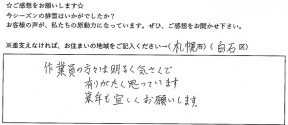 ☆ご感想をお願いします☆
今シーズンの除雪はいかがでしたか？
お客様の声が、私たちの原動力になっています。ぜひ、ご感想をお聞かせ下さい。
※差支えなければ、お住まいの地域をご記入ください→(札幌市)(白石区)
作業員の方々は明るく気さくで
有りがたく思っています
来年も宜しくお願いします。